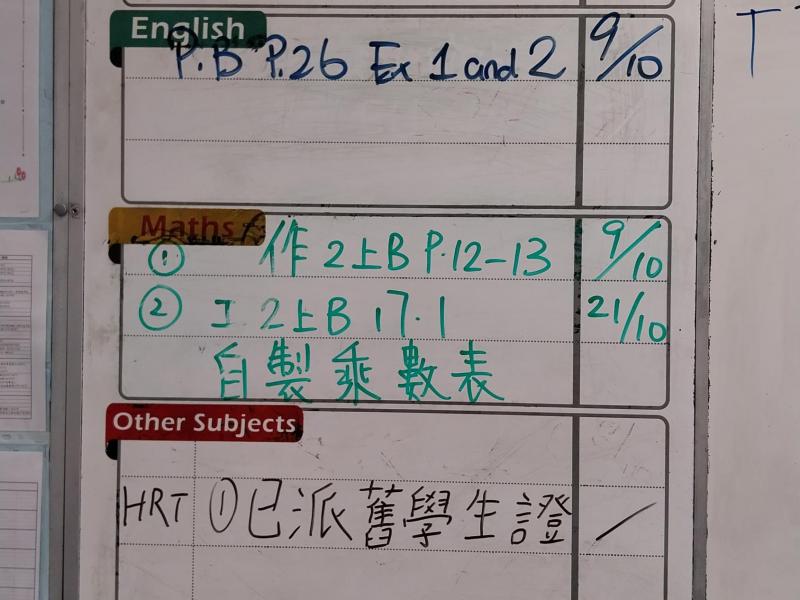 English
P.B P.26 Ex 1 and 2 9/10
Maths
① 作 2上B P.12-13 9/10
② 工 2上B 17.1 21/10
自製乘數表
Other Subjects
HRT ① 已派舊學生證 /